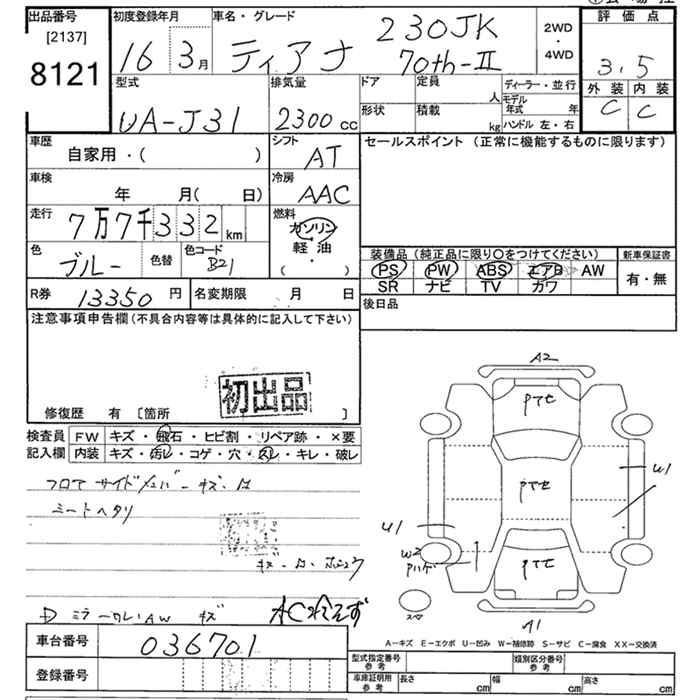 出品番号
[2137]
8121
初度登録年月
16 3月
車名・グレード
ティアナ 230JK
70th-Ⅱ
2WD
・
4WD
評価点
3.5
外装 内装
C C
型式
UA-J31
排気量
2300cc
ドア
形状
定員
人
積載
kg
ディーラー・並行
モデル
年式 年
ハンドル 左・右
車歴
自家用・( )
シフト
AT
セールスポイント (正常に機能するものに限ります)
車検
年 月(日)
冷房
AAC
走行
7万7千332km
燃料
ガソリン
軽・油
( ・ )
色
ブルー
色替
色コード
B21
装備品 (純正品に限り○をつけてください)
新車保証書
PS PW ABS エアB AW
SR ナビ TV カワ
有・無
R券 13350円
名変期限 月 日
後日品
注意事項申告欄 (不具合内容等は具体的に記入して下さい)
初出品
修復歴 有 [箇所 ]
検査員
記入欄
FW キズ・飛石・ヒビ割・リペア跡・×要
内装 キズ・汚レ・コゲ・穴・スレ・キレ・破レ
シートヘタリ
ACひえず
A2
PTE
PTE
PTE
U1
U1
W2
A1
スペア
A=キズ E=エクボ U=凹み W=補修跡 S=サビ C=腐食 XX=交換済
車台番号
036701
登録番号
型式指定番号
参考
類別区分番号
参考
車庫証明用
参考
長さ cm
幅 cm
高さ cm